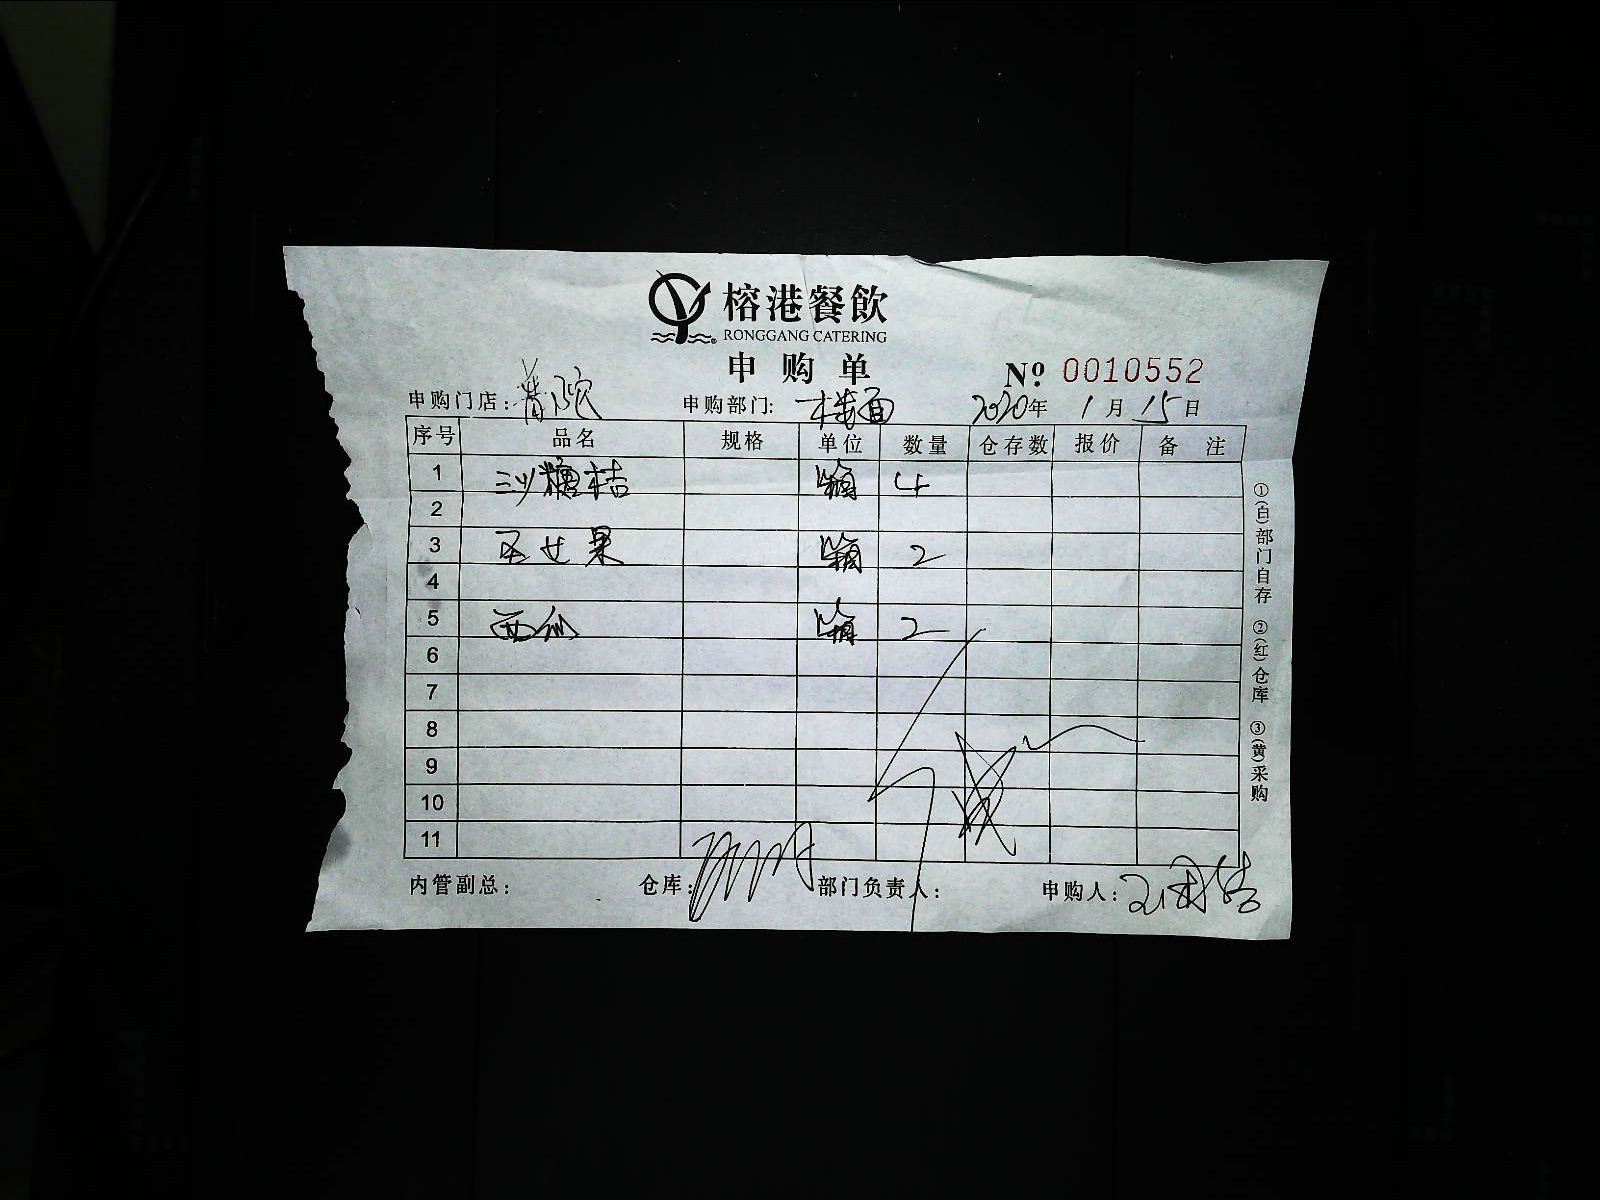 榕港餐飲
RONGGANG CATERING
申购单
№ 0010552
申购门店：普陀 申购部门：楼面 2020年 1月 15日
序号 品名 规格 单位 数量 仓存数 报价 备注
1 沙糖桔 箱 4
2
3 圣女果 箱 2
4
5 西瓜 箱 2
6
7
8
9
10
11
内管副总： 仓库： 部门负责人： 申购人：
①(白)部门自存 ②(红)仓库 ③(黄)采购